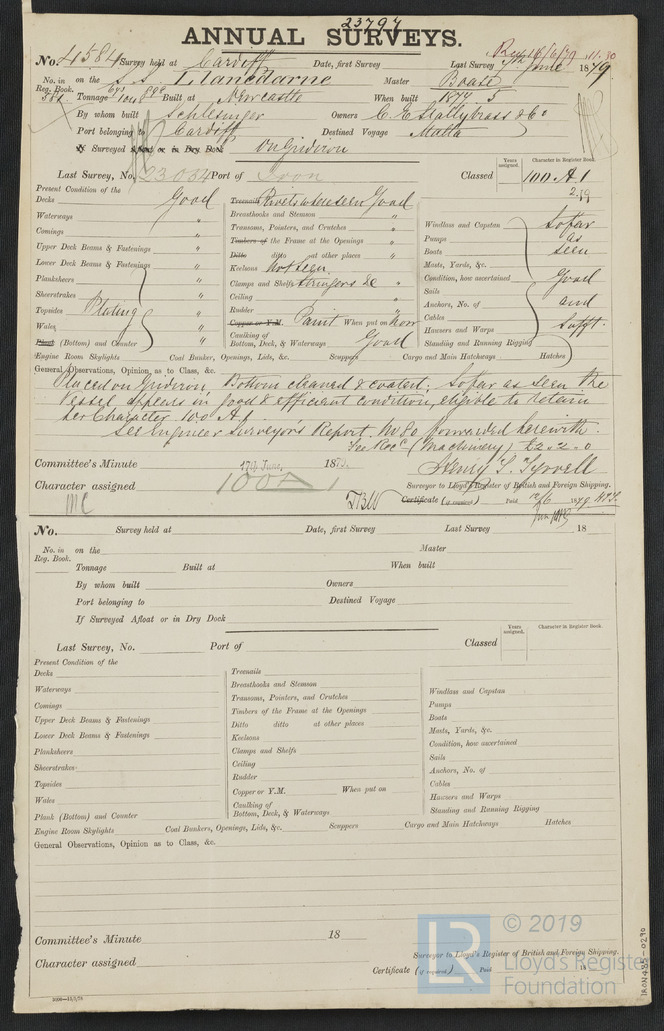 23794
ANNUAL SURVEYS.
No. 4584 Survey held at Cardiff Date, first Survey Last Survey 7th June 1879.
No. in Reg. Book. on the S.S. Llandarne Master Boase
581 Tonnage Built at Newcastle When built 1874
By whom built Schlesinger Owners C. E. Stallybrass & Co
Port belonging to Cardiff Destined Voyage Malta
If Surveyed Afloat or in Dry Dock On Gridiron
Years assigned. Character in Register Book.
Last Survey, No. 23034 Port of Iron Classed 100 A1
2.79
Present Condition of the
Decks Good
Waterways "
Comings "
Upper Deck Beams & Fastenings "
Lower Deck Beams & Fastenings "
Planksheers "
Sheerstrakes "
Topsides Plating "
Wales "
Plank (Bottom) and Counter "
Treenails Rivets where seen Good
Breasthooks and Stemson "
Transoms, Pointers, and Crutches "
Timbers of the Frame at the Openings "
Ditto ditto at other places "
Keelsons Not seen.
Clamps and Shelfs Stringers &c "
Ceiling "
Rudder "
Copper or Y.M. Paint When put on Now
Caulking of Bottom, Deck, & Waterways Good
Windlass and Capstan So far
Pumps as
Boats seen
Masts, Yards, &c.
Condition, how ascertained Good
Sails
Anchors, No. of and
Cables
Hawsers and Warps Sufft.
Standing and Running Rigging
Engine Room Skylights Coal Bunker, Openings, Lids, &c. Scuppers Cargo and Main Hatchways Hatches
General Observations, Opinion as to Class, &c.
Placed on Gridiron, Bottom cleaned & coated; So far as seen the
Vessel appears in good & efficient condition, eligible to retain
her Character 100 A1.
See Engineer Surveyor's Report No 80 forwarded herewith.
Fee Recd (Machinery) £2.2.0
Committee's Minute 17th June, 1879. Henry T. Tyrrell
Character assigned 100 A 1 Surveyor to Lloyd's Register of British and Foreign Shipping.
Certificate (if required) Paid
No. Survey held at Date, first Survey Last Survey 18
No. in Reg. Book. on the Master
Tonnage Built at When built
By whom built Owners
Port belonging to Destined Voyage
If Surveyed Afloat or in Dry Dock
Years assigned. Character in Register Book.
Last Survey, No. Port of Classed
Present Condition of the
Decks
Waterways
Comings
Upper Deck Beams & Fastenings
Lower Deck Beams & Fastenings
Planksheers
Sheerstrakes
Topsides
Wales
Plank (Bottom) and Counter
Treenails
Breasthooks and Stemson
Transoms, Pointers, and Crutches
Timbers of the Frame at the Openings
Ditto ditto at other places
Keelsons
Clamps and Shelfs
Ceiling
Rudder
Copper or Y.M. When put on
Caulking of Bottom, Deck, & Waterways
Windlass and Capstan
Pumps
Boats
Masts, Yards, &c.
Condition, how ascertained
Sails
Anchors, No. of
Cables
Hawsers and Warps
Standing and Running Rigging
Engine Room Skylights Coal Bunkers, Openings, Lids, &c. Scuppers Cargo and Main Hatchways Hatches
General Observations, Opinion as to Class, &c.
Committee's Minute 18
Character assigned
Surveyor to Lloyd's Register of British and Foreign Shipping.
Certificate (if required) Paid 18
LR © 2019
Lloyd's Register
Foundation
IRON485-0290